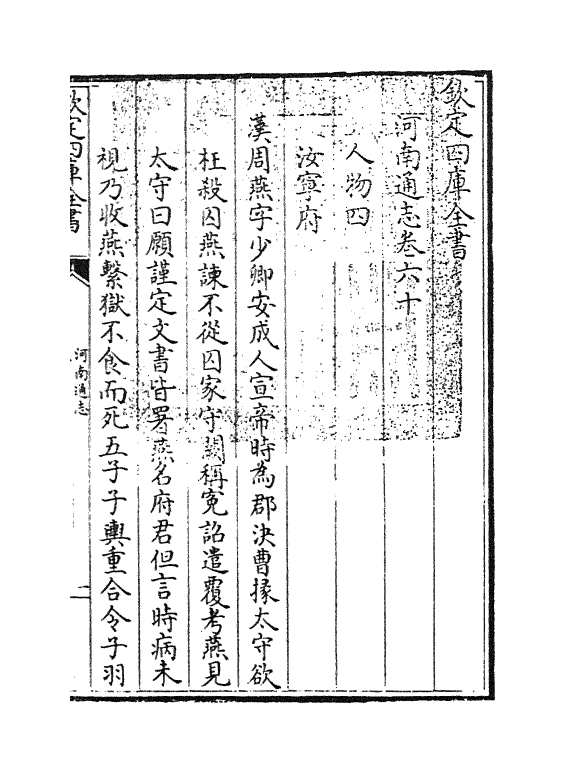 欽定四庫全書
河南通志卷六十
人物四
汝寧府
漢周燕字少卿安成人宣帝時為郡決曹掾太守欲
枉殺囚燕諫不從囚家守闕稱寃詔遣覆考燕見
太守曰願謹定文書皆署燕名府君但言時病未
視乃收燕繫獄不食而死五子子輿重合令子羽
欽定四庫全書
河南通志